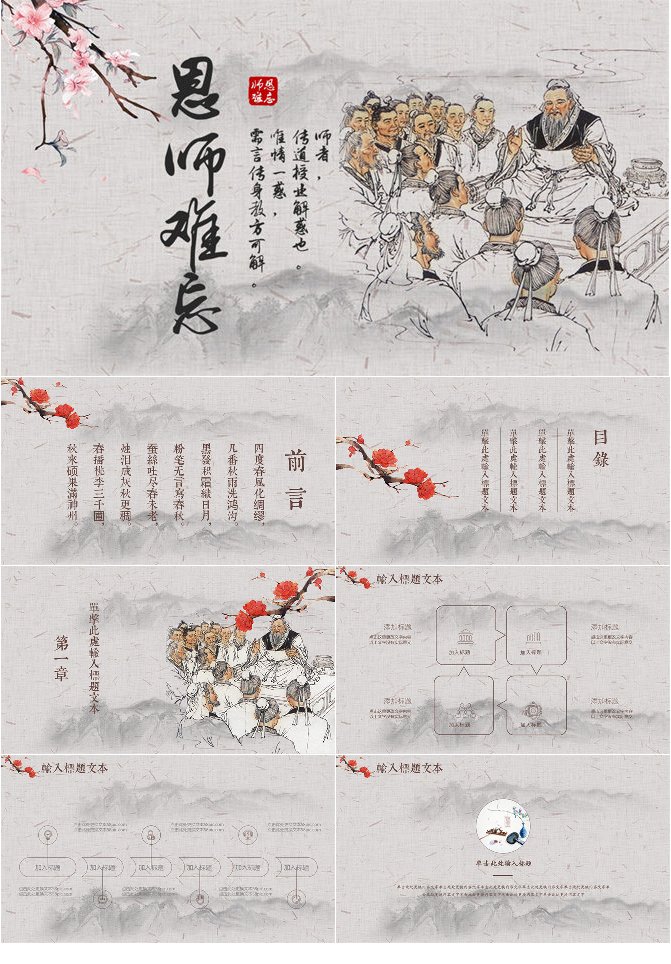 恩师难忘
恩师
难忘
师者，
传道授业解惑也。
唯情一惑，
需言传身教方可解。
前言
四度春風化綢繆，
几番秋雨洗鸿沟。
黑發积霜織日月，
粉笔无言寫春秋。
蚕絲吐尽春未老，
烛泪成灰秋更稠。
春播桃李三千圃，
秋來硕果滿神州。
目錄
單擊此處輸入標題文本
單擊此處輸入標題文本
單擊此處輸入標題文本
單擊此處輸入標題文本
第一章
單擊此處輸入標題文本
輸入標題文本
添加标题
加入标题
加入标题
添加标题
添加标题
加入标题
加入标题
添加标题
輸入標題文本
加入标题
加入标题
加入标题
加入标题
加入标题
加入标题
輸入標題文本
单击此处输入标题